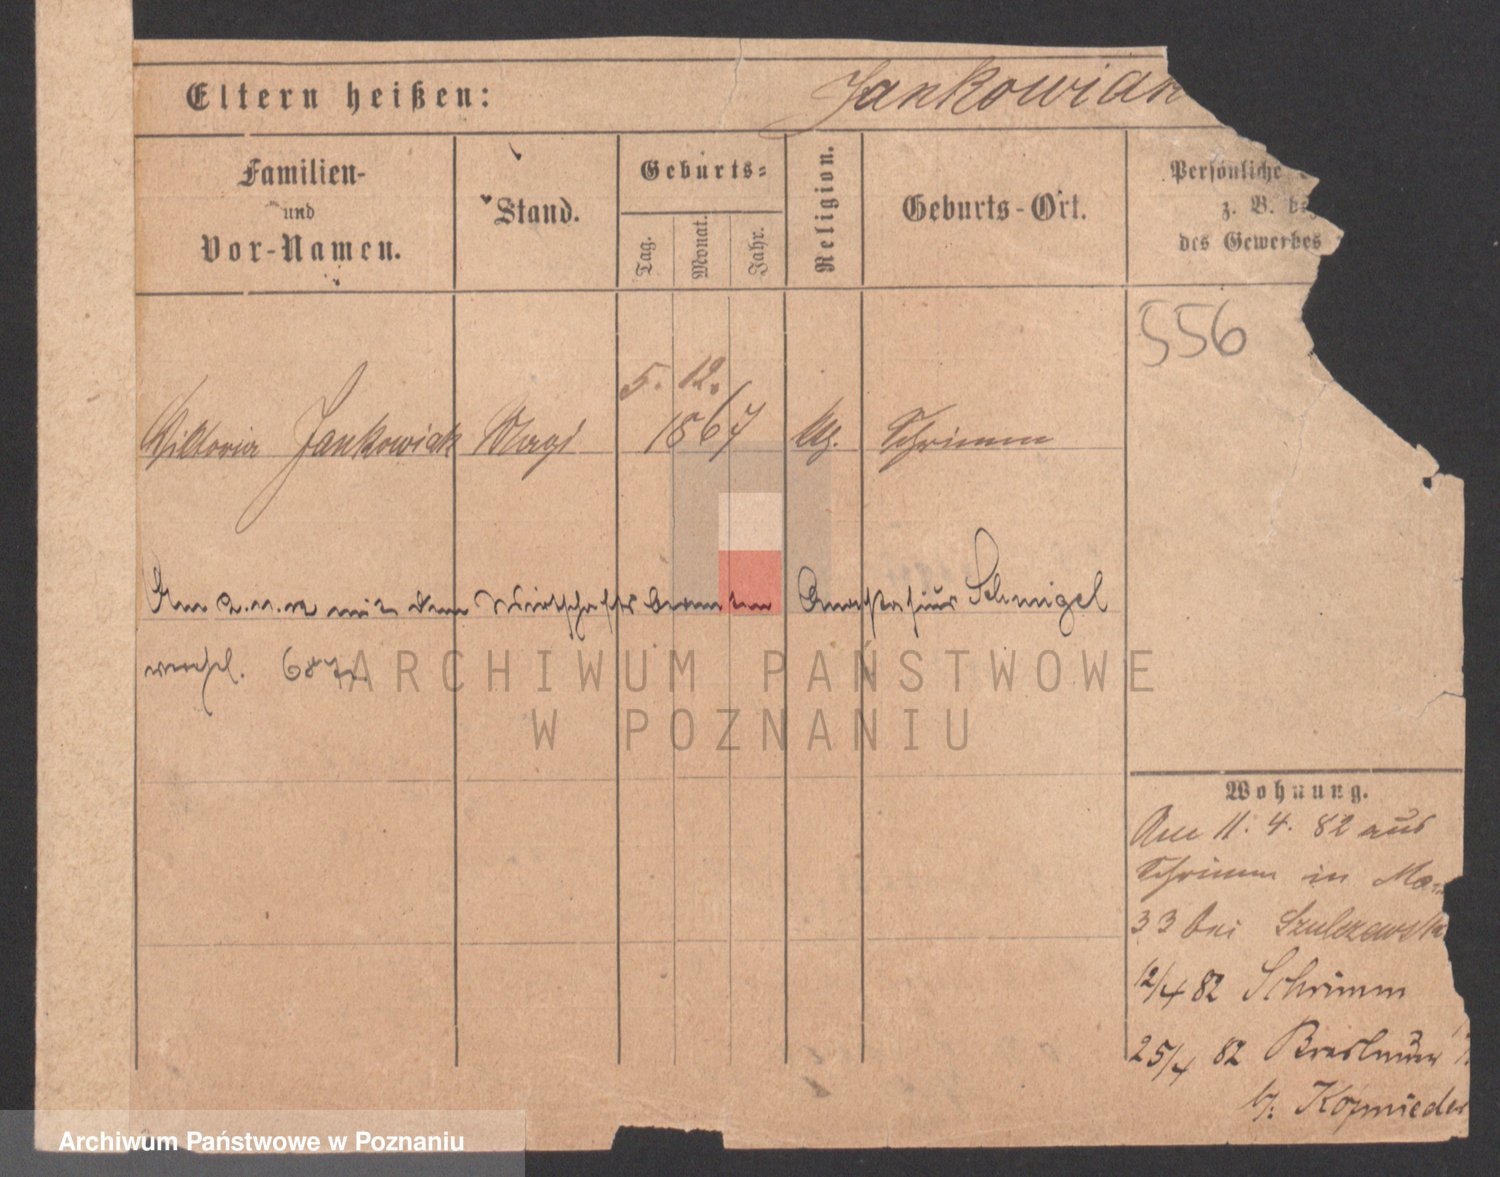 Eltern heißen: Jankowiak
Familien- und Vor-Namen.
Stand.
Geburts-
Tag.
Monat.
Jahr.
Religion.
Geburts-Ort.
Persönliche
z. B. be
des Gewerbes
556
5. 12.
Wiktoria Jankowiak Magd 1867 kth. Schrimm
mit dem Wirthschafts Beamten Schmigel
ARCHIWUM PAŃSTWOWE
W POZNANIU
Wohnung.
Am 11. 4. 82 aus
Schrimm in
33 bei Szulczewsk
12/4 82 Schrimm
25/4 82 Breslauer
b/: 
Archiwum Państwowe w Poznaniu